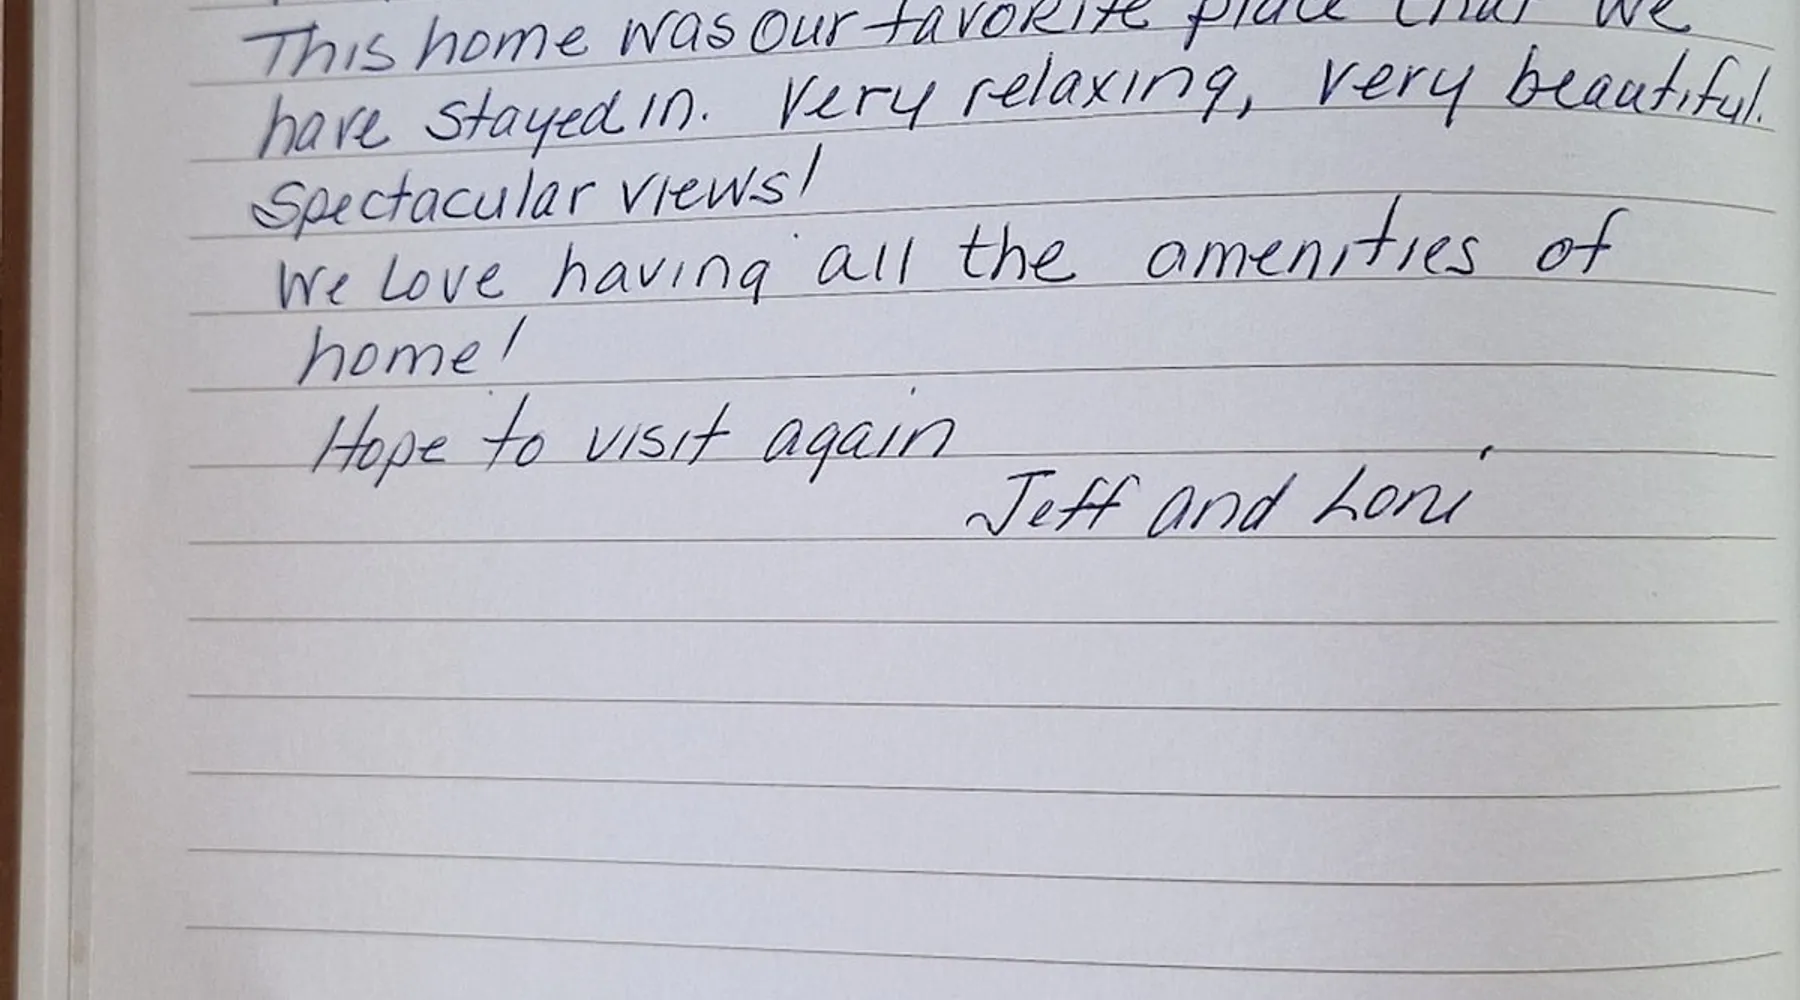 This home was our favorite place that we
have stayed in. Very relaxing, very beautiful.
Spectacular views!
We Love having all the amenities of
home!
Hope to visit again
Jeff and Lori